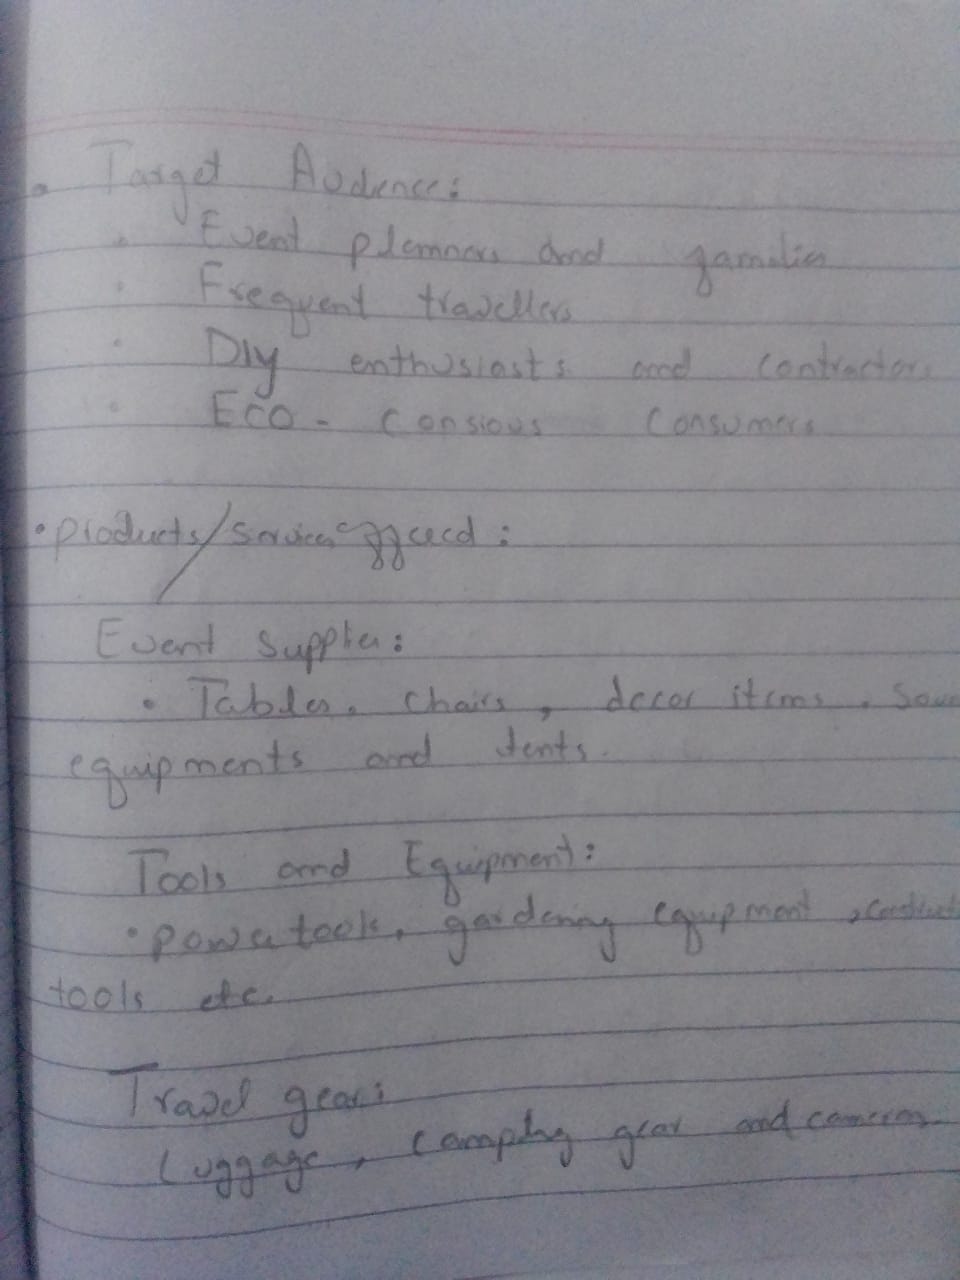 Target Audence:
Event planners and families
Frequent travellers
DIY enthusiasts and contractors
Eco - Consious Consumers
• products/services offered :
Event Supplies:
• Tables, Chairs, decor items,
equipments and tents.
Tools and Equipment:
• power tools, gardening equipment,
tools etc.
Travel gear:
Luggage, camping gear and cameras